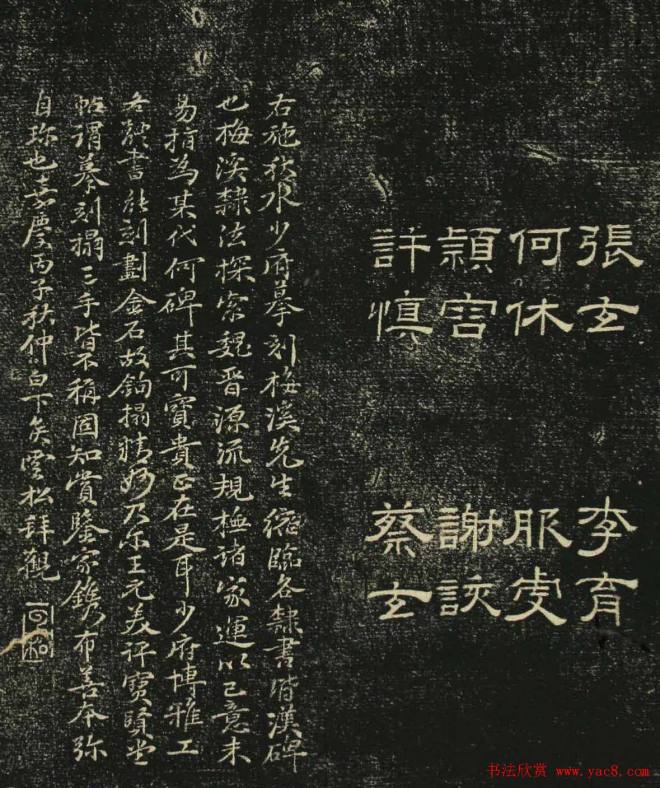 張玄 李育
何休 服虔
頴容 謝該
許慎 蔡玄
右施秋水少府摹刻梅溪先生縮臨各隸書皆漢碑
也梅溪隸法探索魏晉源流規橅諸家運以己意未
易指為某代何碑其可寶貴正在是耳少府博雅工
各體書能刻劃金石故鉤搨精妙乃尔王元美評寶賢堂
帖謂摹刻搨三手皆不稱固知賞鑒家鐫布善本弥
自珍也嘉慶丙子秋仲白下侯雲松拜觀
书法欣赏 www.yac8.com